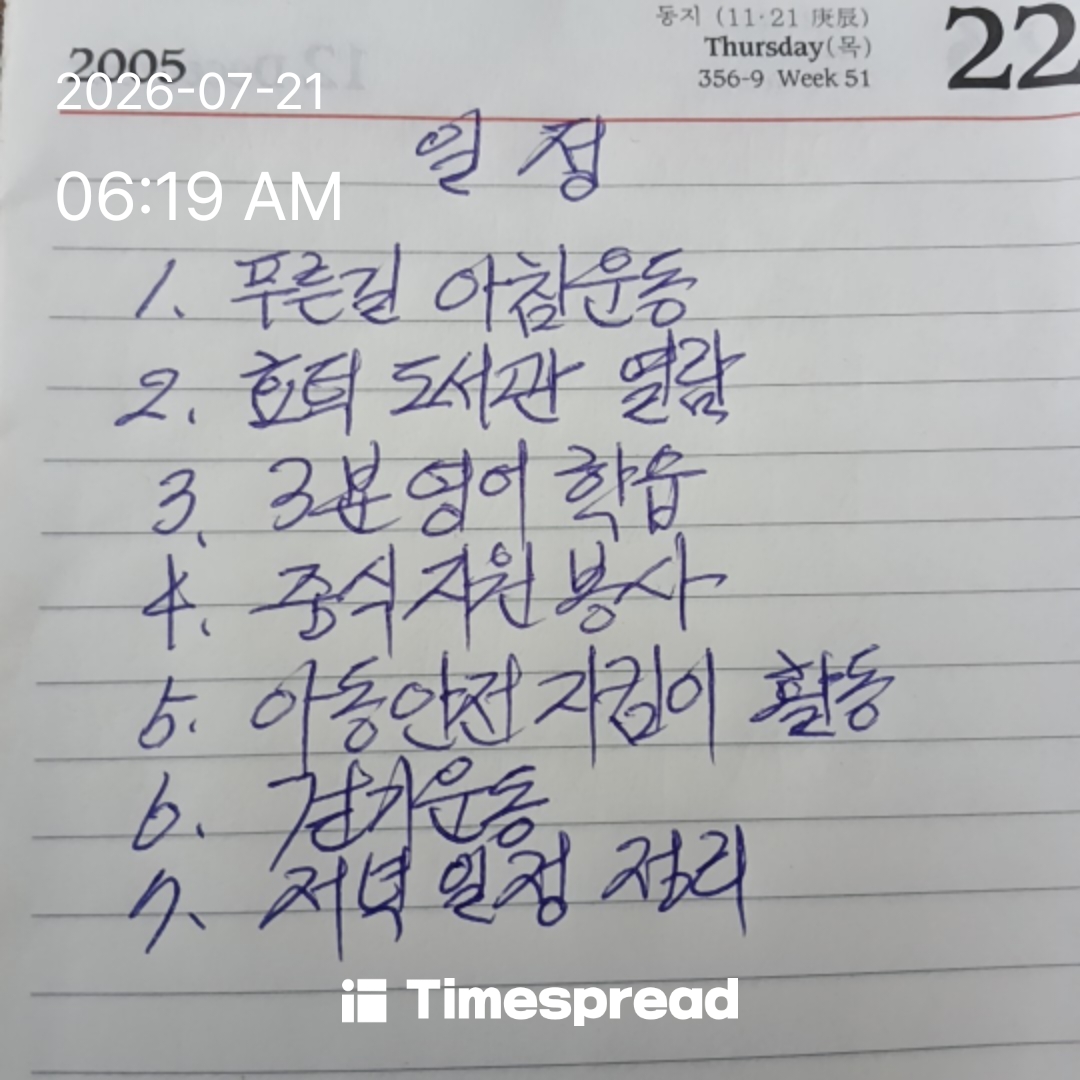 동지 (11·21 庚辰)
2005
Thursday(목)
22
356-9 Week 51
2026-07-21
06:19 AM
일 정
1. 푸른길 아침운동
2. 효터 도서관 열람
3. 3분 영어 학습
4. 중식 자원 봉사
5. 아동안전 지킴이 활동
6. 걷기운동
7. 저녁 일정 정리
Timespread